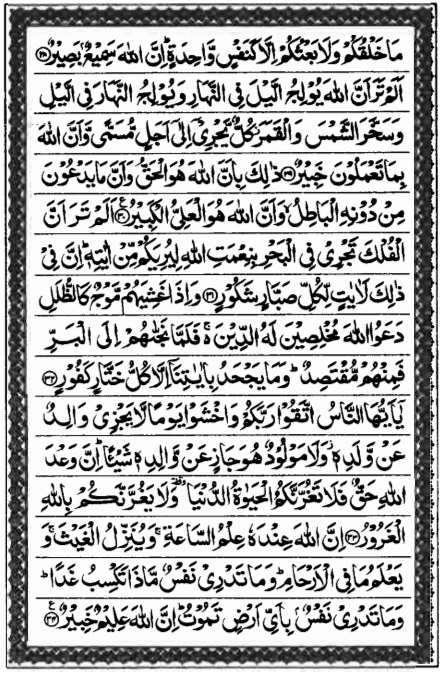 مَا خَلْقُكُمْ وَلَا بَعْثُكُمْ اِلَّا كَنَفْسٍ وَّاحِدَةٍ ؕ اِنَّ اللّٰهَ سَمِيْعٌۢ بَصِيْرٌ ﴿۲۸﴾
اَلَمْ تَرَ اَنَّ اللّٰهَ يُوْلِجُ الَّيْلَ فِى النَّهَارِ وَ يُوْلِجُ النَّهَارَ فِى الَّيْلِ
وَ سَخَّرَ الشَّمْسَ وَ الْقَمَرَ ؗ كُلٌّ يَّجْرِىْۤ اِلٰٓى اَجَلٍ مُّسَمًّى وَّ اَنَّ اللّٰهَ
بِمَا تَعْمَلُوْنَ خَبِيْرٌ ﴿۲۹﴾ ذٰلِكَ بِاَنَّ اللّٰهَ هُوَ الْحَقُّ وَ اَنَّ مَا يَدْعُوْنَ
مِنْ دُوْنِهِ الْبَاطِلُ ۙ وَ اَنَّ اللّٰهَ هُوَ الْعَلِىُّ الْكَبِيْرُ ﴿۳۰﴾ اَلَمْ تَرَ اَنَّ
الْفُلْكَ تَجْرِىْ فِى الْبَحْرِ بِنِعْمَتِ اللّٰهِ لِيُرِيَكُمْ مِّنْ اٰيٰتِهٖ ؕ اِنَّ فِىْ
ذٰلِكَ لَاٰيٰتٍ لِّكُلِّ صَبَّارٍ شَكُوْرٍ ﴿۳۱﴾ وَ اِذَا غَشِيَهُمْ مَّوْجٌ كَالظُّلَلِ
دَعَوُا اللّٰهَ مُخْلِصِيْنَ لَهُ الدِّيْنَ ۚ فَلَمَّا نَجّٰىهُمْ اِلَى الْبَرِّ
فَمِنْهُمْ مُّقْتَصِدٌ ؕ وَ مَا يَجْحَدُ بِاٰيٰتِنَاۤ اِلَّا كُلُّ خَتَّارٍ كَفُوْرٍ ﴿۳۲﴾
يٰۤاَيُّهَا النَّاسُ اتَّقُوْا رَبَّكُمْ وَ اخْشَوْا يَوْمًا لَّا يَجْزِىْ وَالِدٌ
عَنْ وَّلَدِهٖ ؗ وَ لَا مَوْلُوْدٌ هُوَ جَازٍ عَنْ وَّالِدِهٖ شَيْـًٔا ؕ اِنَّ وَعْدَ
اللّٰهِ حَقٌّ فَلَا تَغُرَّنَّكُمُ الْحَيٰوةُ الدُّنْيَا ۥ وَ لَا يَغُرَّنَّكُمْ بِاللّٰهِ
الْغَرُوْرُ ﴿۳۳﴾ اِنَّ اللّٰهَ عِنْدَهٗ عِلْمُ السَّاعَةِ ۚ وَ يُنَزِّلُ الْغَيْثَ ۚ وَ
يَعْلَمُ مَا فِى الْاَرْحَامِ ؕ وَ مَا تَدْرِىْ نَفْسٌ مَّاذَا تَكْسِبُ غَدًا ؕ
وَ مَا تَدْرِىْ نَفْسٌۢ بِاَىِّ اَرْضٍ تَمُوْتُ ؕ اِنَّ اللّٰهَ عَلِيْمٌ خَبِيْرٌ ﴿۳۴﴾